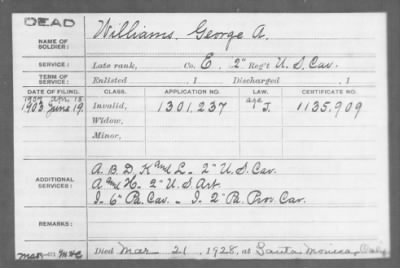 DEAD
NAME OF SOLDIER: Williams, George A.
SERVICE: Late rank, Co. E, 2" Reg't U.S. Cav.
TERM OF SERVICE: Enlisted , 1 Discharged , 1
DATE OF FILING. CLASS. APPLICATION NO. LAW. CERTIFICATE NO.
1903 June 19. Invalid, 1301,237 age J. 1135,909
Widow,
Minor,
ADDITIONAL SERVICES: A. B. D. K and L - 2" U.S. Cav.
A and H. 2" U.S. Art.
I - 6" Pa. Cav. - I. 2" Pa. Prov. Cav.
REMARKS:
Died Mar 21, 1928, at Santa Monica,